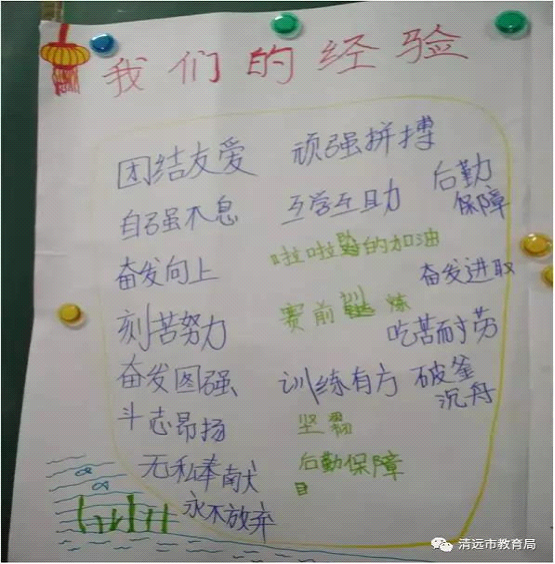 我们的经验
团结友爱
顽强拼搏
自强不息
互学互助
后勤
保障
奋发向上
啦啦 的加油
奋发进取
刻苦努力
赛前 炼
吃苦耐劳
奋发图强
训练有方
破釜
沉舟
斗志昂扬
坚
无私奉献
后勤保障
目
永不放弃
清远市教育局